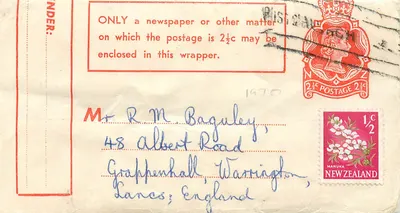 SENDER:
ONLY a newspaper or other matter
on which the postage is 2½c may be
enclosed in this wrapper.
N Z
2½c POSTAGE 2½c
1970
Mr R. M. Baguley,
48 Albert Road
Grappenhall, Warrington,
Lancs, England.
½c
MANUKA
NEW ZEALAND